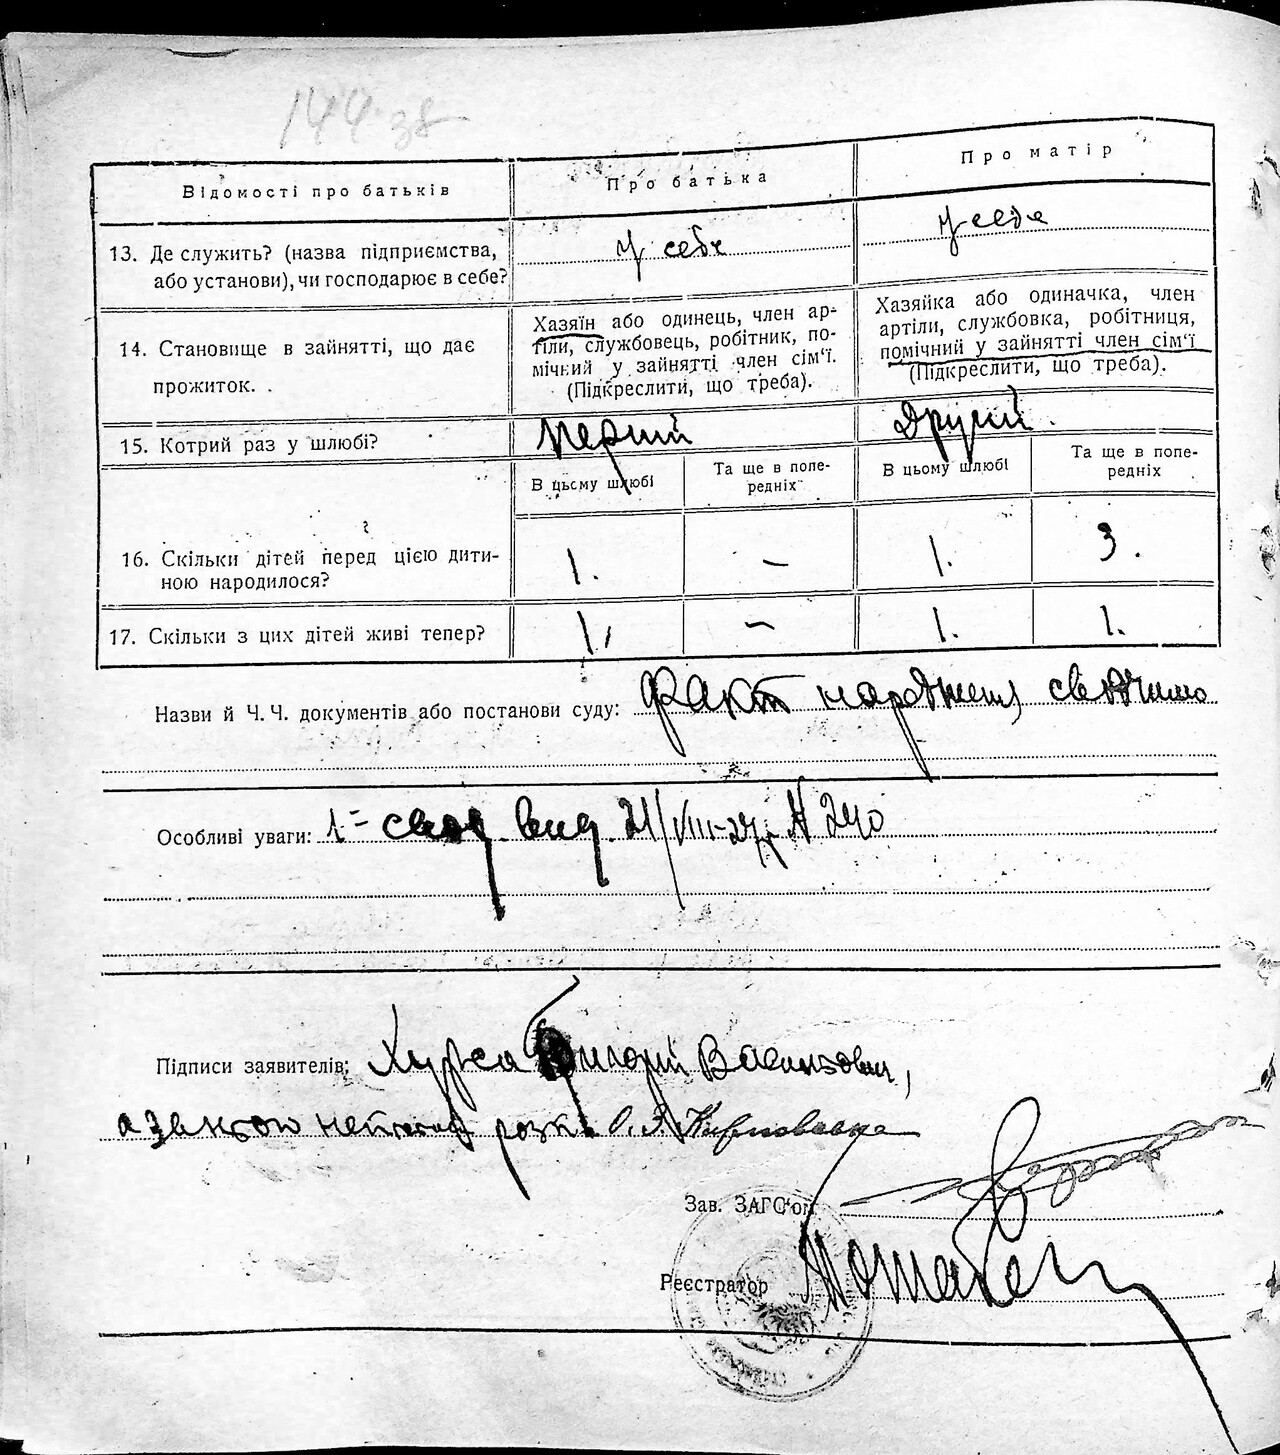 144 зв
Відомості про батьків
Про батька
Про матір
13. Де служить? (назва підприємства,
або установи), чи господарює в себе?
у себе
у себе
14. Становище в зайнятті, що дає
прожиток. .
Хазяїн або одинець, член ар-
тіли, службовець, робітник, по-
мічний у зайнятті член сім'ї.
(Підкреслити, що треба).
Хазяйка або одиначка, член
артіли, службовка, робітниця,
помічний у зайнятті член сім'ї
(Підкреслити, що треба).
15. Котрий раз у шлюбі?
перший
другий.
В цьому шлюбі
Та ще в попе-
редніх
В цьому шлюбі
Та ще в попе-
редніх
16. Скільки дітей перед цією дити-
ною народилося?
1.
–
1.
3.
17. Скільки з цих дітей живі тепер?
1,
–
1.
1.
Назви й Ч. Ч. документів або постанови суду: Факт народження свідчимо
Особливі уваги: 1= свід. вид. 21/VIII-27р. № 240
Підписи заявителів: Хурса Григорій
а за нього розп.
Зав. ЗАГС'ом
Реєстратор